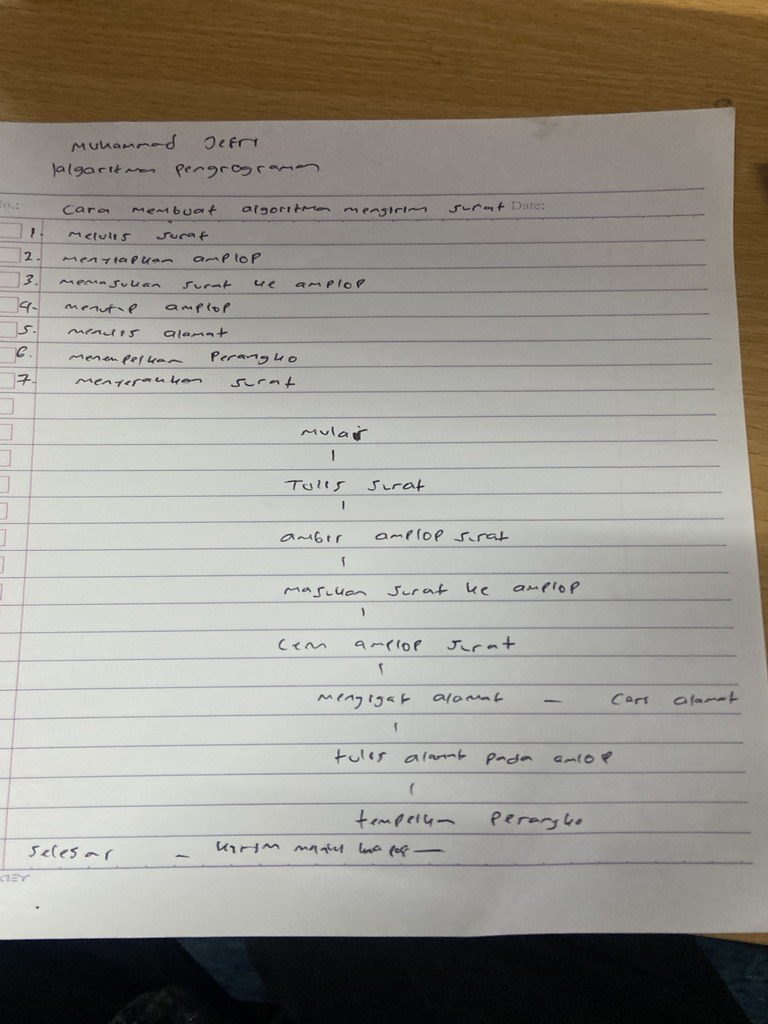 Muhammad Jefri
algoritma pengrograman
No.: Cara membuat algoritma mengirim surat Date:
1. Melulis surat
2. menyiapkan amplop
3. memasukan surat ke amplop
4. menutup amplop
5. menulis alamat
6. menempelkan perangko
7. menyerahkan surat
Mulai
Tulis surat
ambil amplop surat
masukan surat ke amplop
Lem amplop surat
mengigat alamat - Cari alamat
tulis alamat pada amlop
tempelkan perangko
selesai - kirim